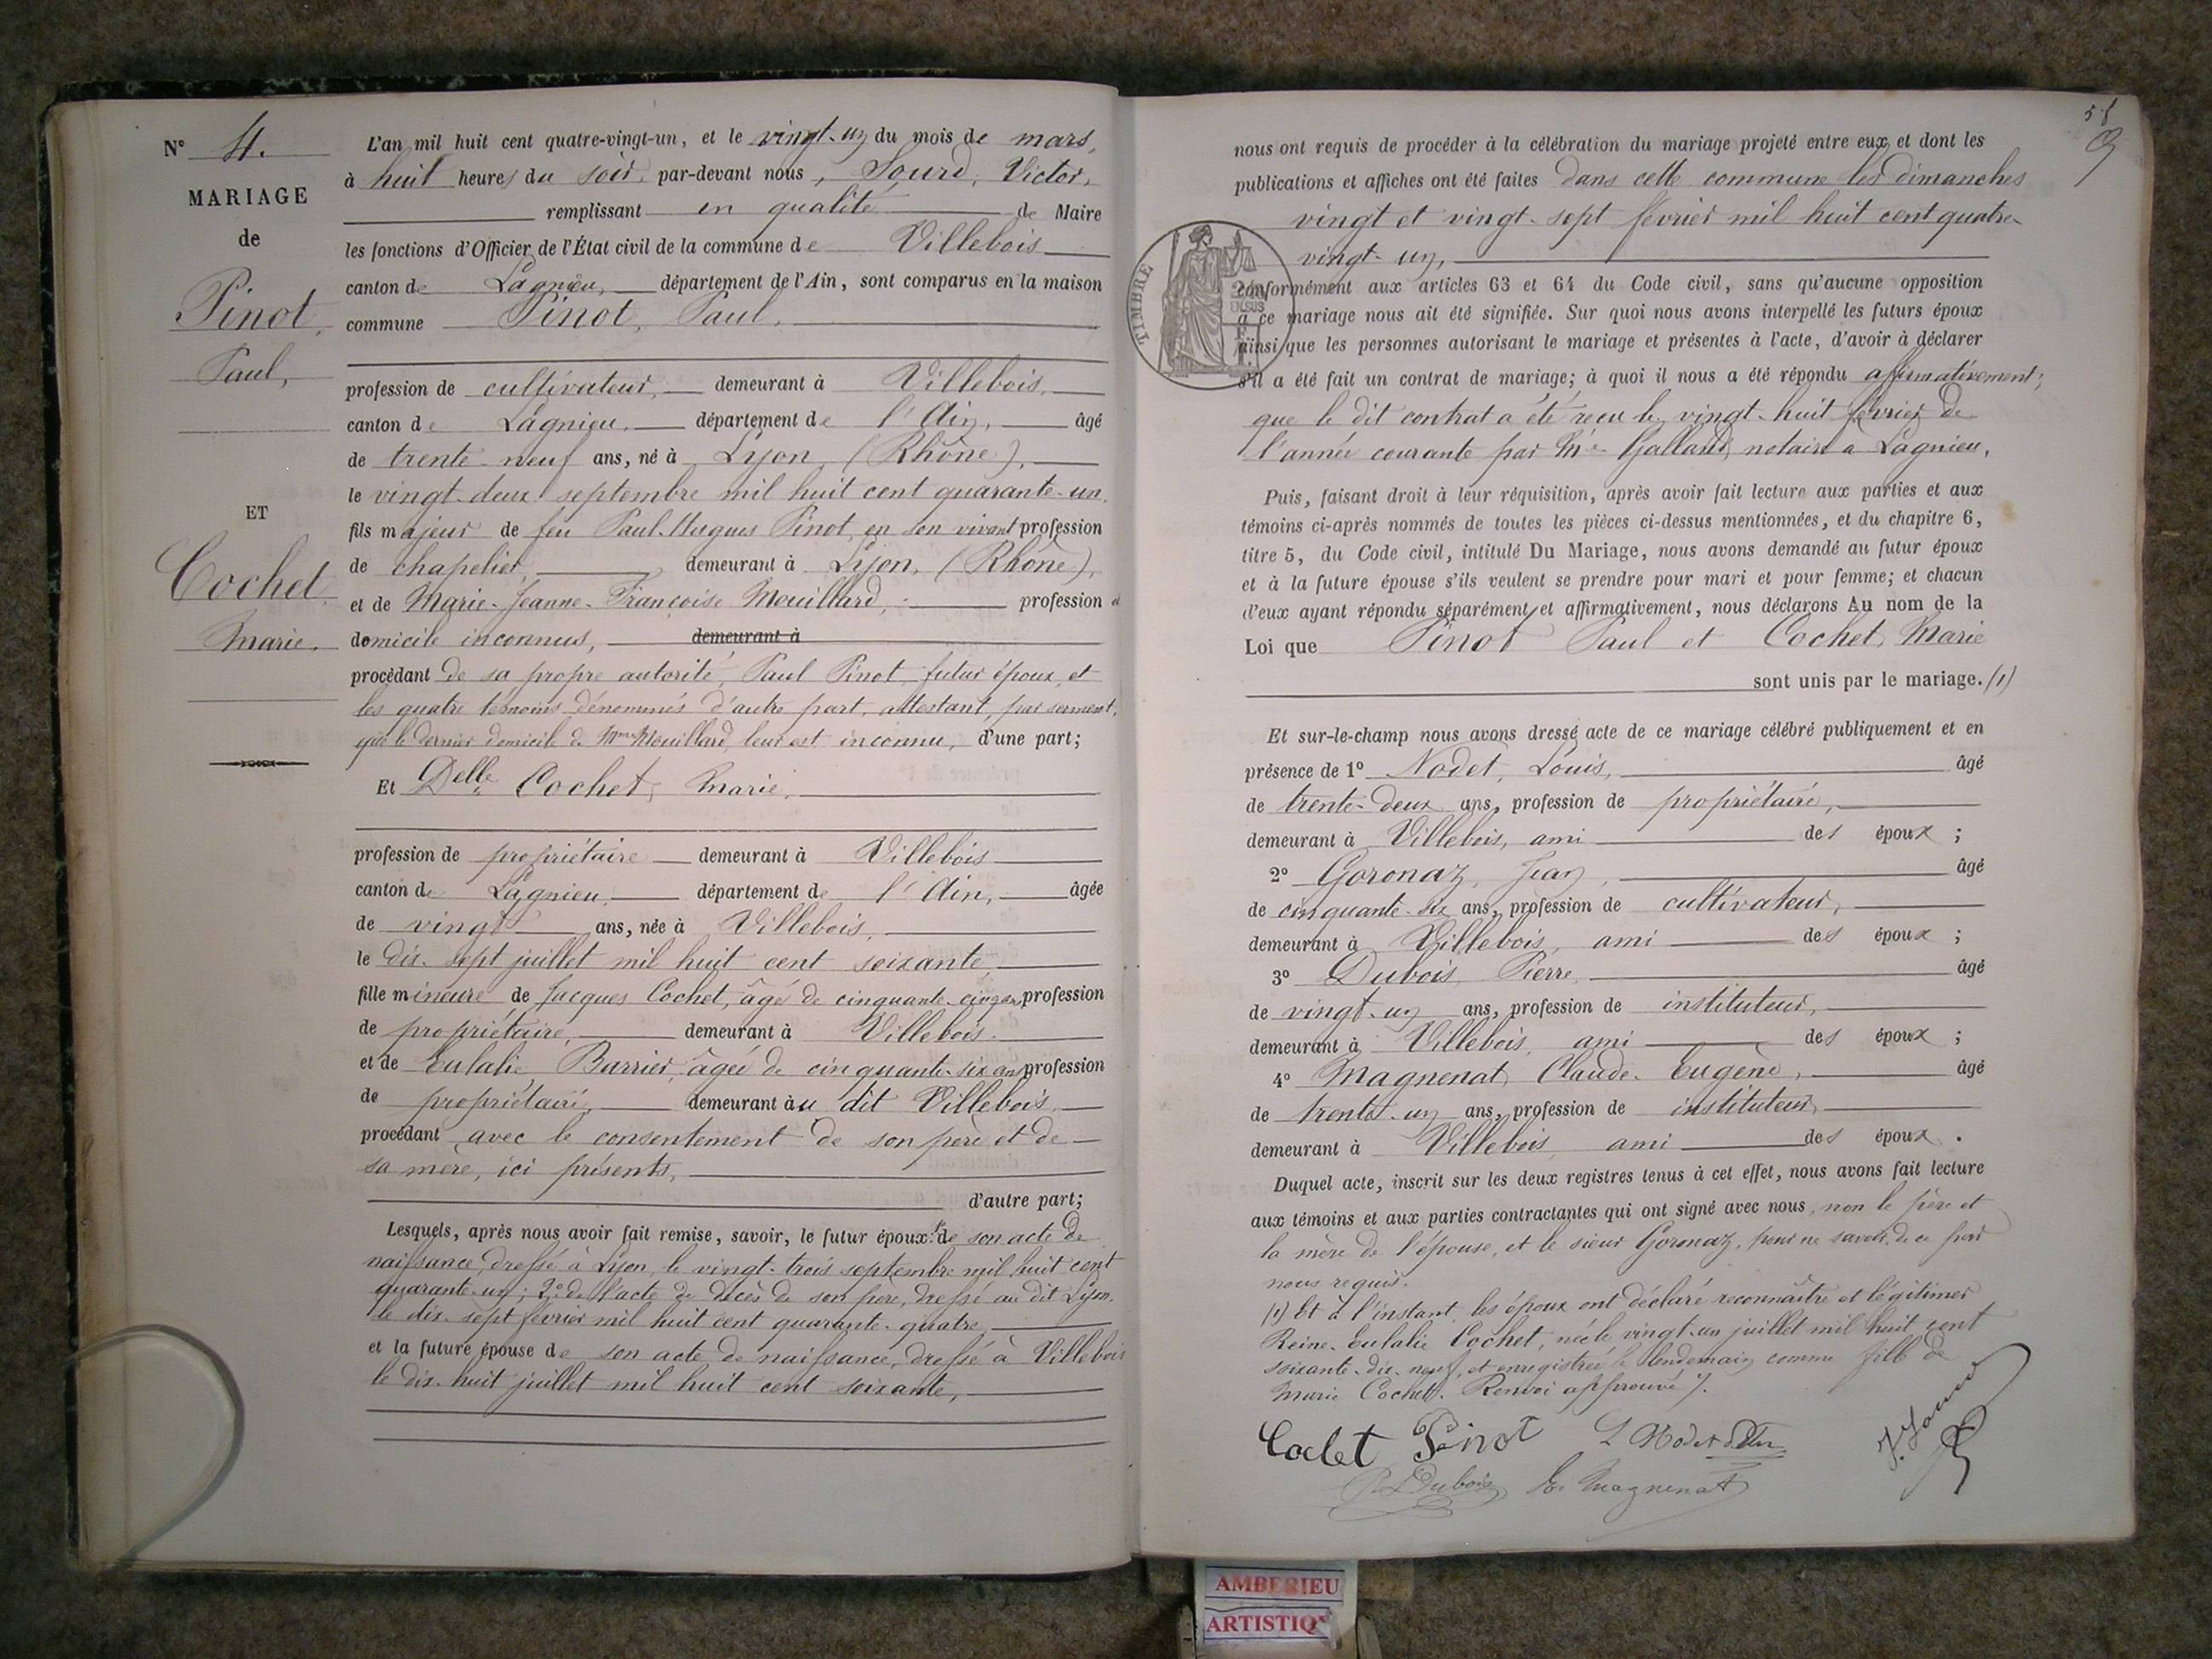 N° 4.
MARIAGE
de
Pinot,
Paul,
ET
Cochet
Marie.
L'an mil huit cent quatre-vingt-un, et le vingt-un du mois de mars,
à huit heures du soir, par-devant nous, Sourd, Victor,
remplissant en qualité de Maire
les fonctions d'Officier de l'État civil de la commune de Villebois
canton de Lagnieu, département de l'Ain, sont comparus en la maison
commune Pinot, Paul,
profession de cultivateur, demeurant à Villebois,
canton de Lagnieu, département de l'Ain, âgé
de trente-neuf ans, né à Lyon, (Rhône),
le vingt-deux septembre mil huit cent quarante-un,
fils majeur de feu Paul-Hugues Pinot, en son vivant profession
de chapelier, demeurant à Lyon, (Rhône),
et de Marie-Jeanne-Françoise Mouillard, profession et
domicile inconnus, demeurant à
procédant de sa propre autorité, Paul Pinot, futur époux, et
les quatre témoins dénommés d'autre part, attestant, par serment,
que le dernier domicile de Mme Mouillard, leur est inconnu, d'une part;
Et Delle Cochet, Marie,
profession de propriétaire demeurant à Villebois
canton de Lagnieu, département de l'Ain, âgée
de vingt ans, née à Villebois,
le dix-sept juillet mil huit cent soixante,
fille mineure de Jacques Cochet, âgé de cinquante-cinq ans, profession
de propriétaire, demeurant à Villebois
et de Eulalie Barrier, âgée de cinquante-six ans, profession
de propriétaire, demeurant au dit Villebois,
procédant avec le consentement de son père et de
sa mère, ici présents,
d'autre part;
Lesquels, après nous avoir fait remise, savoir, le futur époux: 1° de son acte de
naissance, dressé à Lyon, le vingt-trois septembre mil huit cent
quarante-un; 2° de l'acte de décès de son père, dressé au dit Lyon
le dix-sept février mil huit cent quarante-quatre
et la future épouse de son acte de naissance, dressé à Villebois
le dix-huit juillet mil huit cent soixante,
58
9
nous ont requis de procéder à la célébration du mariage projeté entre eux et dont les
publications et affiches ont été faites dans cette commune les dimanches
vingt et vingt-sept février mil huit cent quatre-
vingt-un,
TIMBRE
conformément aux articles 63 et 64 du Code civil, sans qu'aucune opposition
à ce mariage nous ait été signifiée. Sur quoi nous avons interpellé les futurs époux
ainsi que les personnes autorisant le mariage et présentes à l'acte, d'avoir à déclarer
s'il a été fait un contrat de mariage; à quoi il nous a été répondu affirmativement;
que le dit contrat a été reçu le vingt-huit février de
l'année courante par Me Galland, notaire a Lagnieu.
Puis, faisant droit à leur réquisition, après avoir fait lecture aux parties et aux
témoins ci-après nommés de toutes les pièces ci-dessus mentionnées, et du chapitre 6,
titre 5, du Code civil, intitulé Du Mariage, nous avons demandé au futur époux
et à la future épouse s'ils veulent se prendre pour mari et pour femme; et chacun
d'eux ayant répondu séparément et affirmativement, nous déclarons Au nom de la
Loi que Pinot Paul et Cochet, Marie
sont unis par le mariage. (1)
Et sur-le-champ nous avons dressé acte de ce mariage célébré publiquement et en
présence de 1° Nodet, Louis, âgé
de trente-deux ans, profession de propriétaire,
demeurant à Villebois, ami des époux ;
2° Goronaz, Jean, âgé
de cinquante-six ans, profession de cultivateur,
demeurant à Villebois, ami des époux ;
3° Dubois, Pierre, âgé
de vingt-un ans, profession de instituteur,
demeurant à Villebois, ami des époux ;
4° Magnenat, Claude-Eugène, âgé
de trente-un ans, profession de instituteur,
demeurant à Villebois, ami des époux.
Duquel acte, inscrit sur les deux registres tenus à cet effet, nous avons fait lecture
aux témoins et aux parties contractantes qui ont signé avec nous, non le père et
la mère de l'épouse, et le sieur Goronaz, pour ne savoir, de ce par
nous requis.
(1) Et à l'instant, les époux ont déclaré reconnaître et légitimer
Reine-Eulalie Cochet, née le vingt-un juillet mil huit cent
soixante-dix-neuf, et enregistrée le lendemain comme fille de
Marie Cochet. Renvoi approuvé.
Coclet Pinot L Nodet
P. Dubois E. Magnenat
AMBERIEU
ARTISTIQ